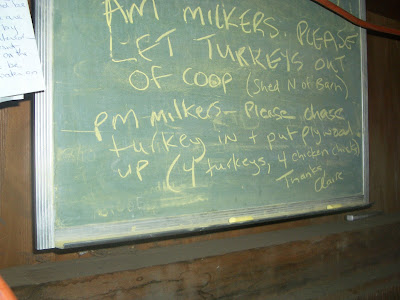 AM MILKERS. PLEASE
LET TURKEYS OUT
OF COOP (Shed N of Barn)
PM milkers - Please chase
turkey in + put plywood
up (4 turkeys, 4 chicken chicks)
Thanks
Claire
be
on